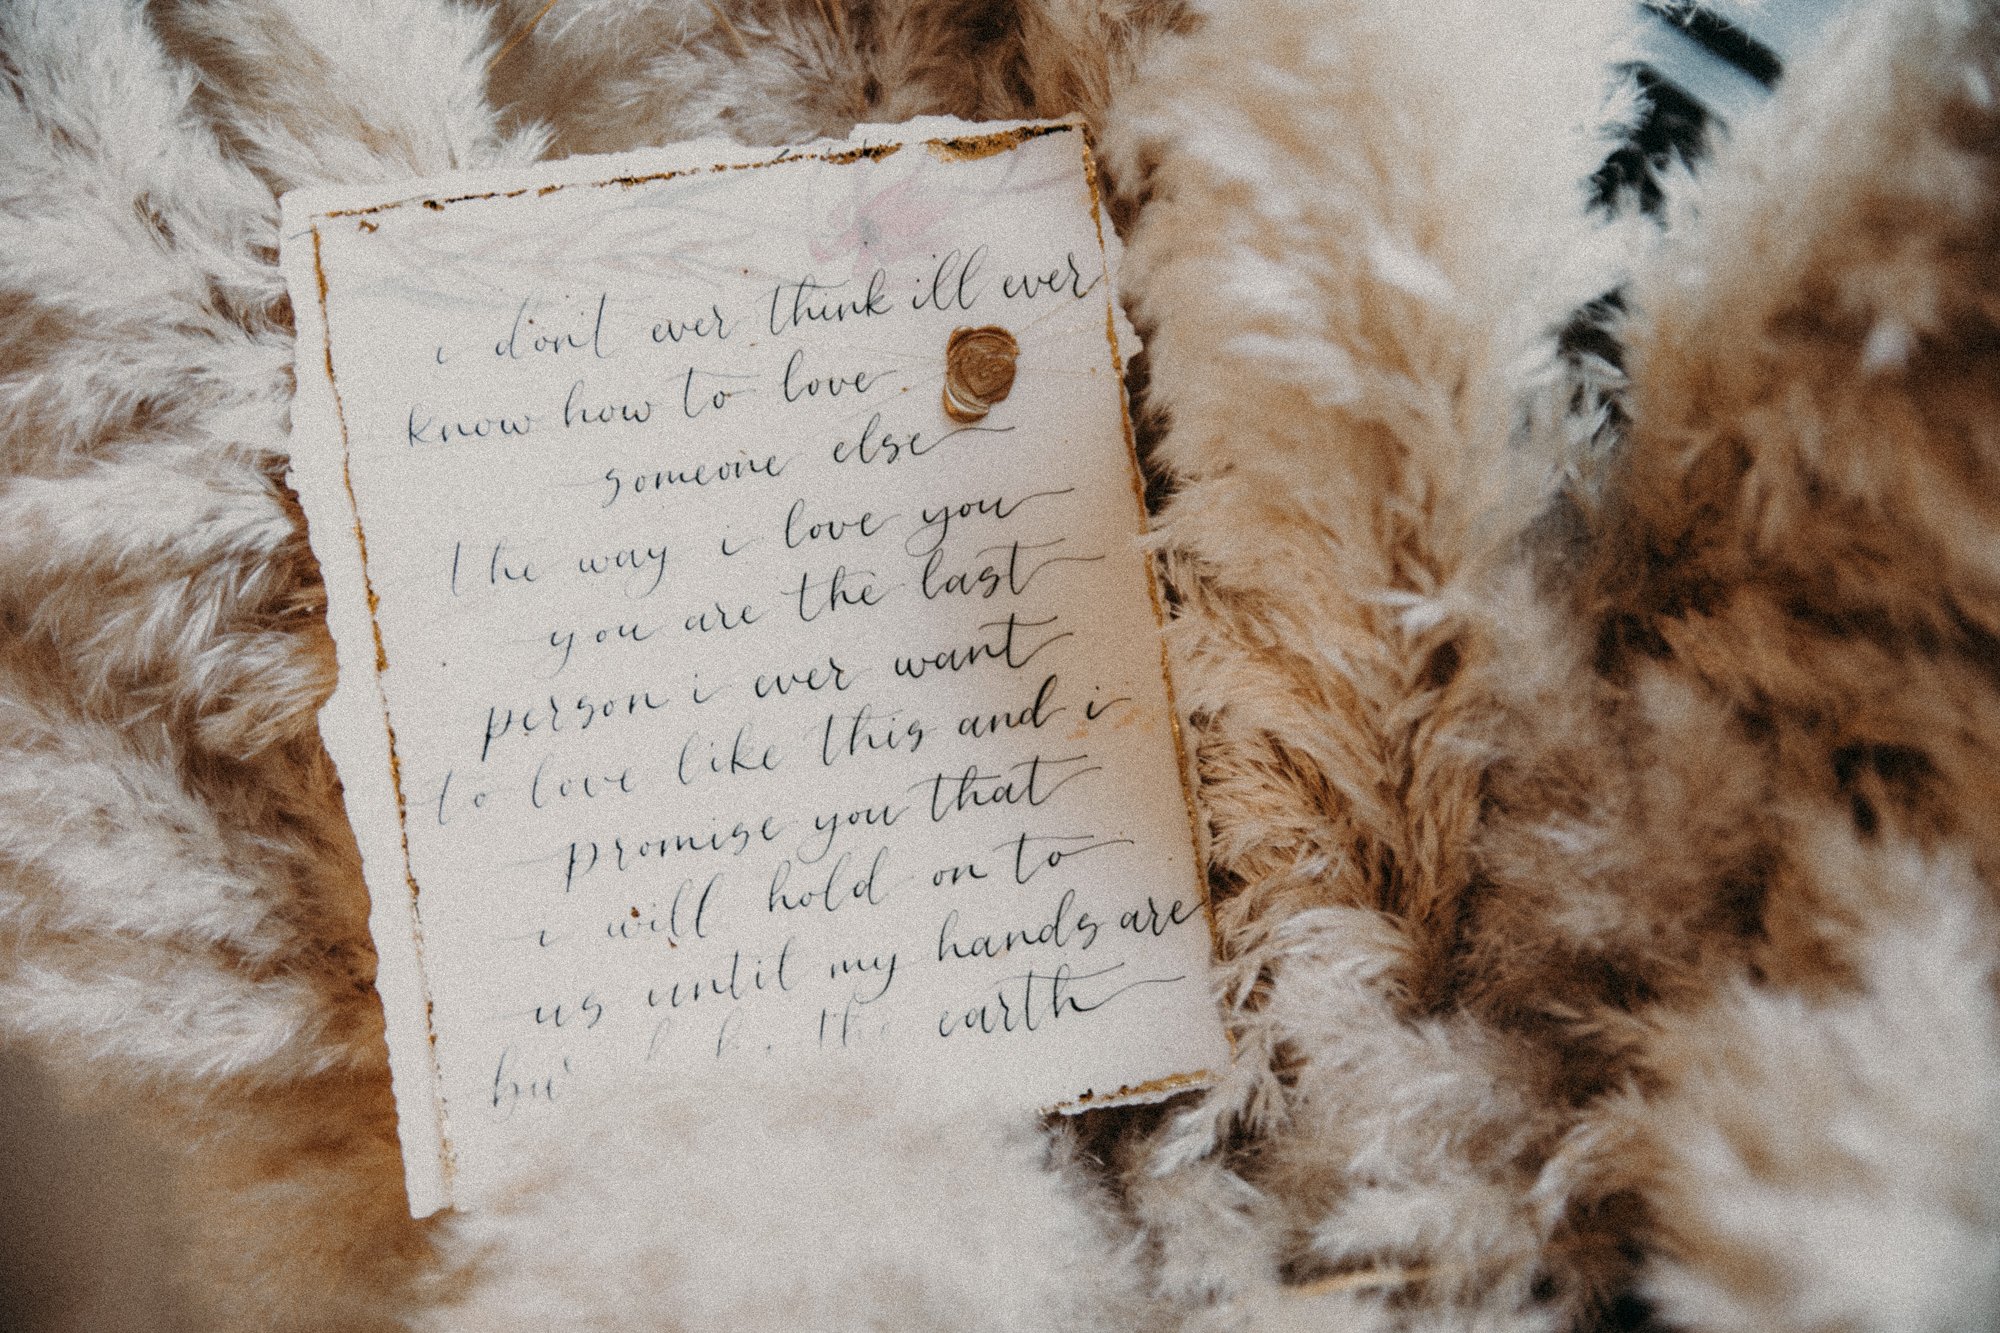 i don't ever think ill ever
know how to love
someone else
the way i love you
you are the last
person i ever want
to love like this and i
promise you that
i will hold on to
us until my hands are
the earth